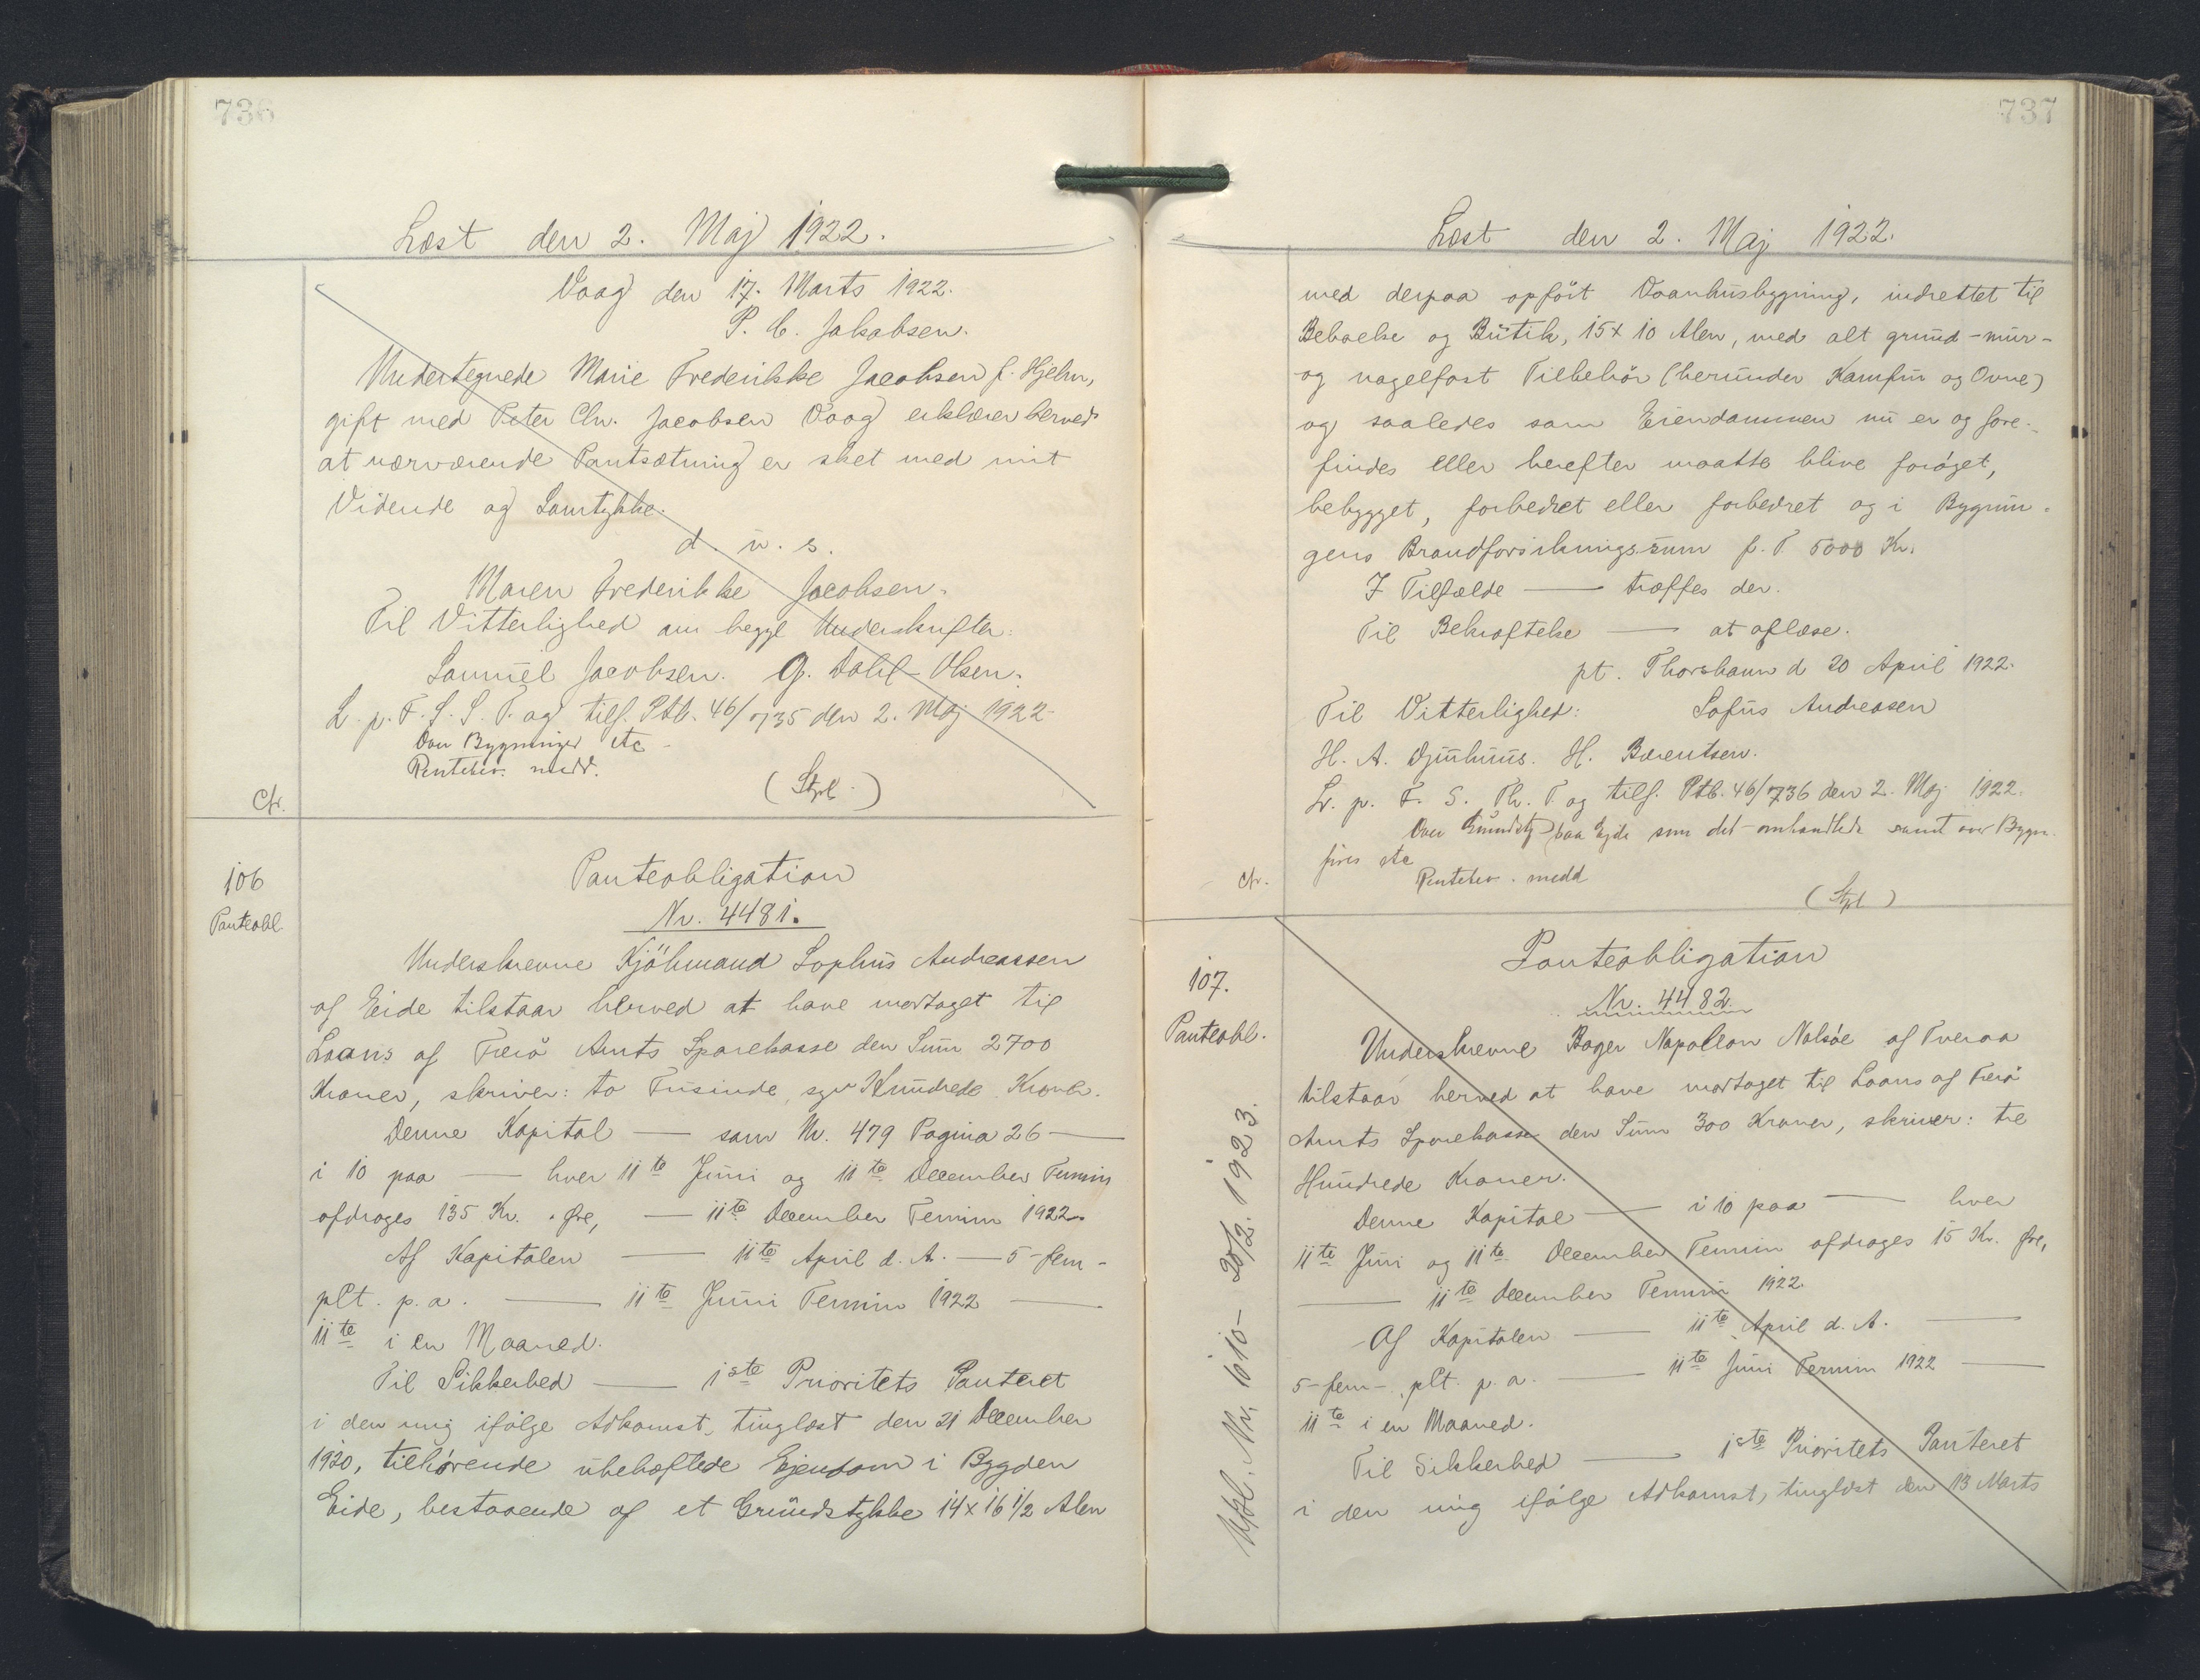 736
Læst den 2. Maj 1922.
Vaag den 17. Marts 1922.
P. C. Jakobsen.
Undertegnede Marie Frederikke Jacobsen f. Hjelm,
gift med Peter Chr. Jacobsen Vaag erklærer herved
at nærværende Pantsætning er sket med mit
Vidende og Samtykke.
d. u. s.
Maren Frederikke Jacobsen.
Til Vitterlighed om begge Underskrifter:
Samuel Jacobsen. G. Dahl-Olsen.
L. p. F. S. S. T. og tilf. Ptb. 46/735 den 2. Maj 1922
Ovn Bygninger etc
Rentebev. medd.
(Stpl.)
Cfr.
106
Panteobl.
Panteobligation
Nr. 4481.
Underskrevne Kjøbmand Sophus Andreassen
af Eide tilstaar herved at have modtaget til
Laans af Færø Amts Sparekasse den Sum 2700
Kroner, skriver: to Tusinde, syv Hundrede Kroner.
Denne Kapital — som Nr. 479 Pagina 26 —
i 10 paa — hver 11te Juni og 11te December Termin
afdrages 135 Kr. . Øre, — 11te December Termin 1922.
Af Kapitalen — 11te April d. A. — 5 - fem -
pCt. p. a. — 11te Juni Termin 1922 —
11te i en Maaned.
Til Sikkerhed — 1ste Prioritets Panteret
i den mig ifølge Adkomst, tinglæst den 21 December
1920, tilhørende ubehæftede Ejendom i Bygden
Eide, bestaaende af et Grundstykke 14x16 1/2 Alen
737
Læst den 2. Maj 1922.
med derpaa opført Vaanhusbygning, indrettet til
Beboelse og Butik, 15x10 Alen, med alt grund-mur-
og nagelfast Tilbehør (herunder Komfur og Ovne)
og saaledes som Eiendommen nu er og fore-
findes eller herefter maatte blive forøget,
bebygget, forbedret eller forbedret og i Bygnin-
gens Brandforsikringssum p. T. 5000 Kr.
I Tilfælde — træffes der.
Til Bekræftelse — at aflæse.
pt. Thorshavn d 20 April 1922.
Til Vitterlighed: Sofus Andreasen
H. A. Djurhuus. H. Bærentsen.
Lr. p. F. S. Th. T. og tilf. Ptb. 46/736 den 2. Maj 1922.
Over Grundst. paa Ejde som det omhandlede samt over Bygn.
Rentebev. medd
(Stpl)
Cfr.
107.
Panteobl.
Panteobligation
Nr. 4482.
Underskrevne Bager Napoleon Nolsøe af Tveraa
tilstaar herved at have modtaget til Laans af Færø
Amts Sparekasse den Sum 300 Kroner, skriver: tre
Hundrede Kroner.
Denne Kapital — i 10 paa — hver
11te Juni og 11te December Termin afdrages 15 Kr. Øre,
— 11te December Termin 1922.
Af Kapitalen — 11te April d. A. —
5-fem- pCt. p. a. — 11te Juni Termin 1922 —
11te i en Maaned.
Til Sikkerhed — 1ste Prioritets Panteret
i den mig ifølge Adkomst, tinglæst den 13 Marts
Nr. 1610 - 20/2. 1923.